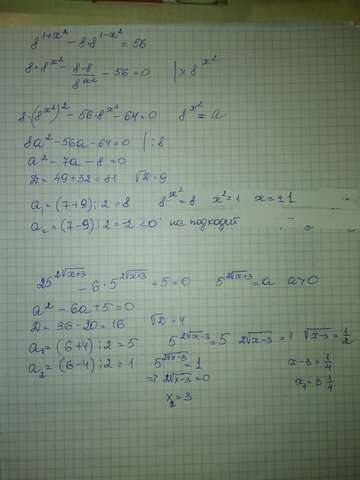 8^{1+x²} - 8·8^{1-x²} = 56
8·8^{x²} - \frac{8·8}{8^{x²}} - 56 = 0 | × 8^{x²}
8·(8^{x²})² - 56·8^{x²} - 64 = 0 8^{x²} = a
8a² - 56a - 64 = 0 | :8
a² - 7a - 8 = 0
D = 49 + 32 = 81 √D = 9
a₁ = (7+9):2 = 8 8^{x²} = 8 x² = 1 x = ±1
a₂ = (7-9):2 = -2 < 0 не подходит
25^{2√x+3} - 6·5^{2√x+3} + 5 = 0 5^{2√x+3} = a a > 0
a² - 6a + 5 = 0
D = 36 - 20 = 16 √D = 4
a₁ = (6+4):2 = 5 5^{2√x-3} = 5 2√x-3 = 1 √x-3 = \frac{1}{2}
a₂ = (6-4):2 = 1 5^{2√x-3} = 1 x-3 = \frac{1}{4}
⇒ 2√x-3 = 0 x₁ = 3\frac{1}{4}
x₂ = 3